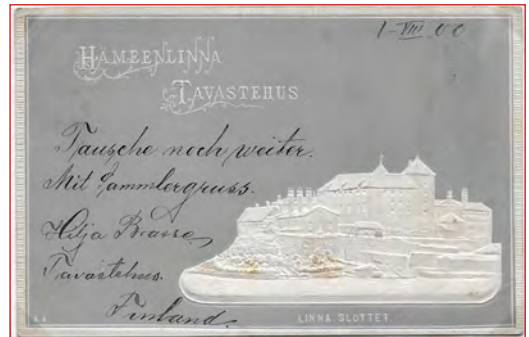 1-VIII 00
HÄMEENLINNA
TAVASTEHUS
Tausche noch weiter.
Mit Sammlergruss.
Hilja
Tavastehus.
Finland.
LINNA. SLOTTET.